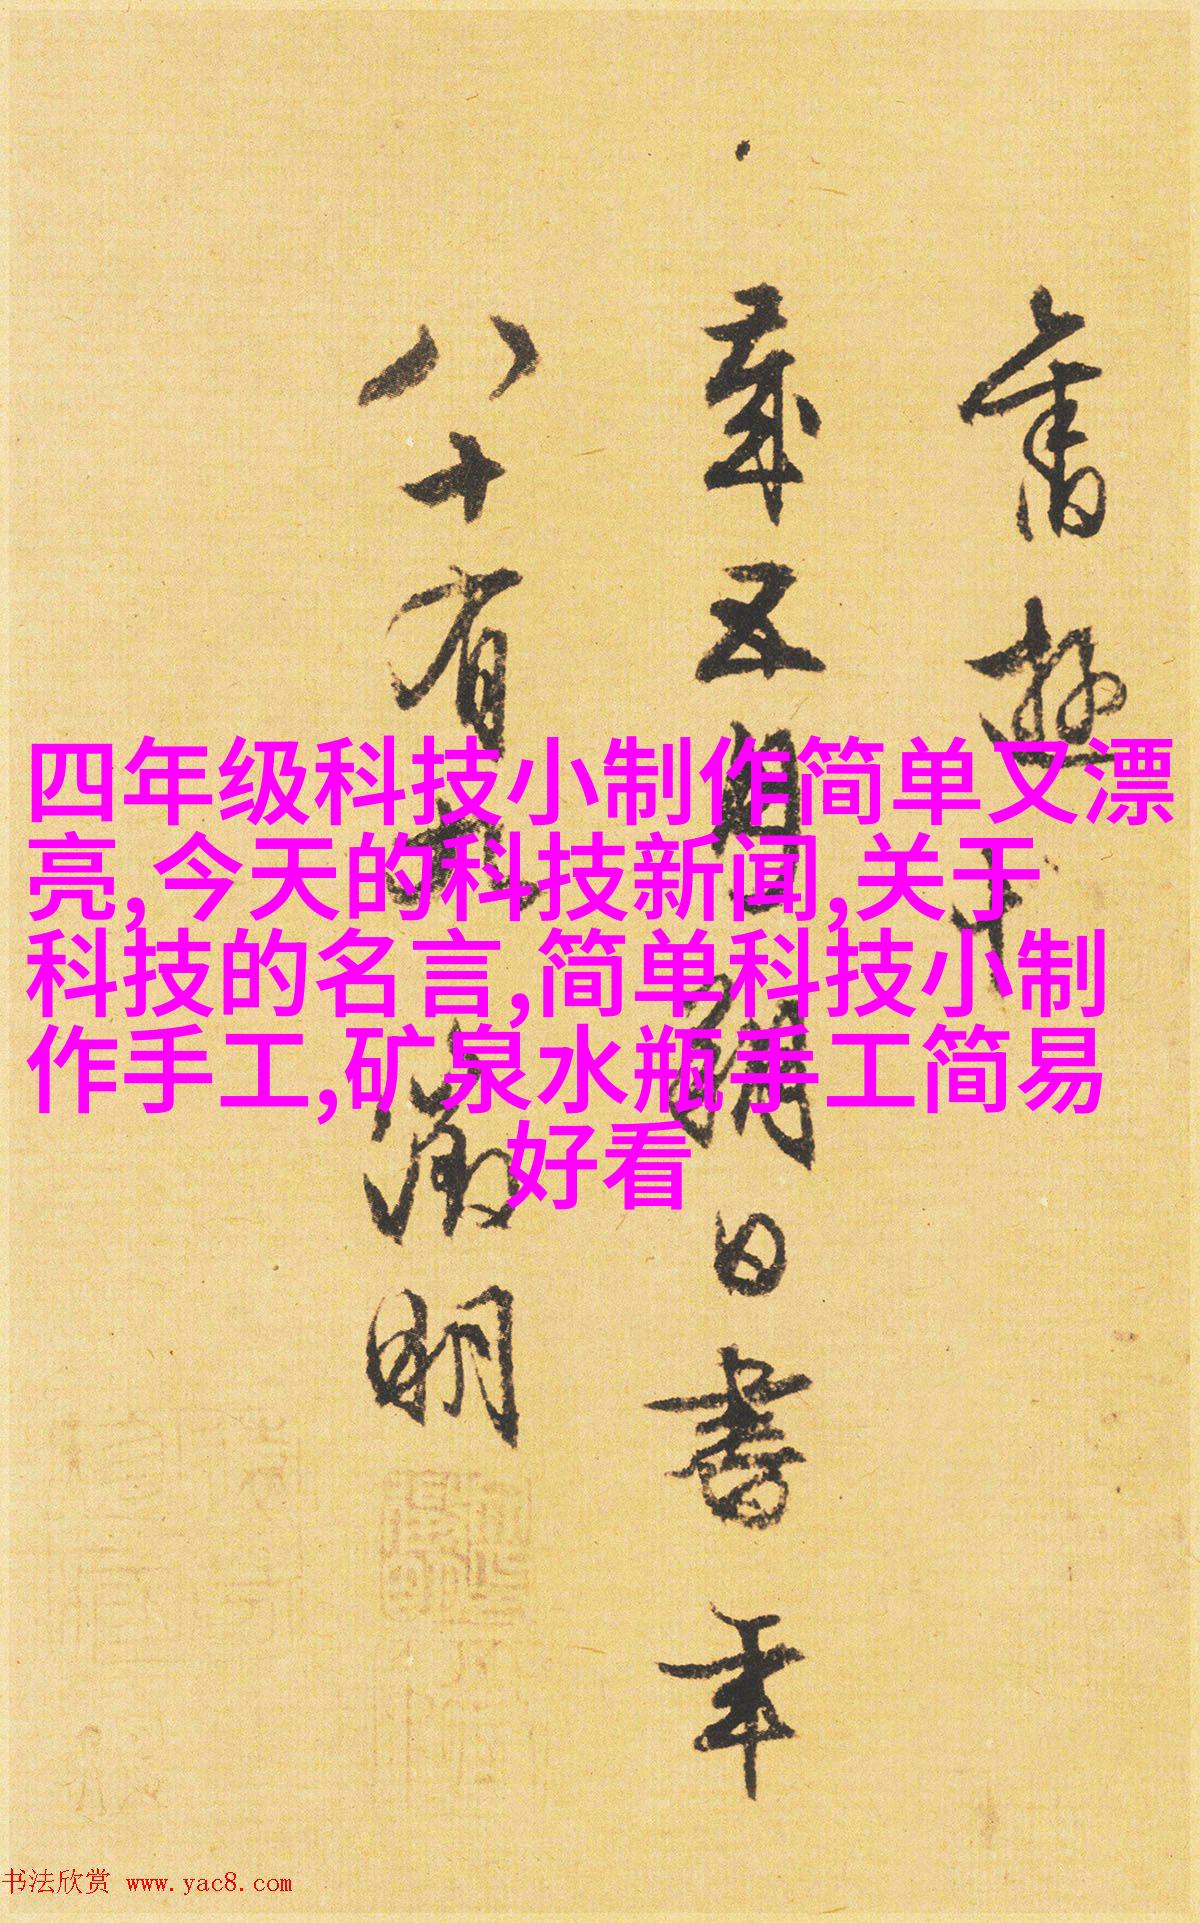 舊遊十
歲五月朔日書年
八十有九徵明
四年级科技小制作简单又漂
亮,今天的科技新闻,关于
科技的名言,简单科技小制
作手工,矿泉水瓶手工简易
好看
书法欣赏 www.yac8.com